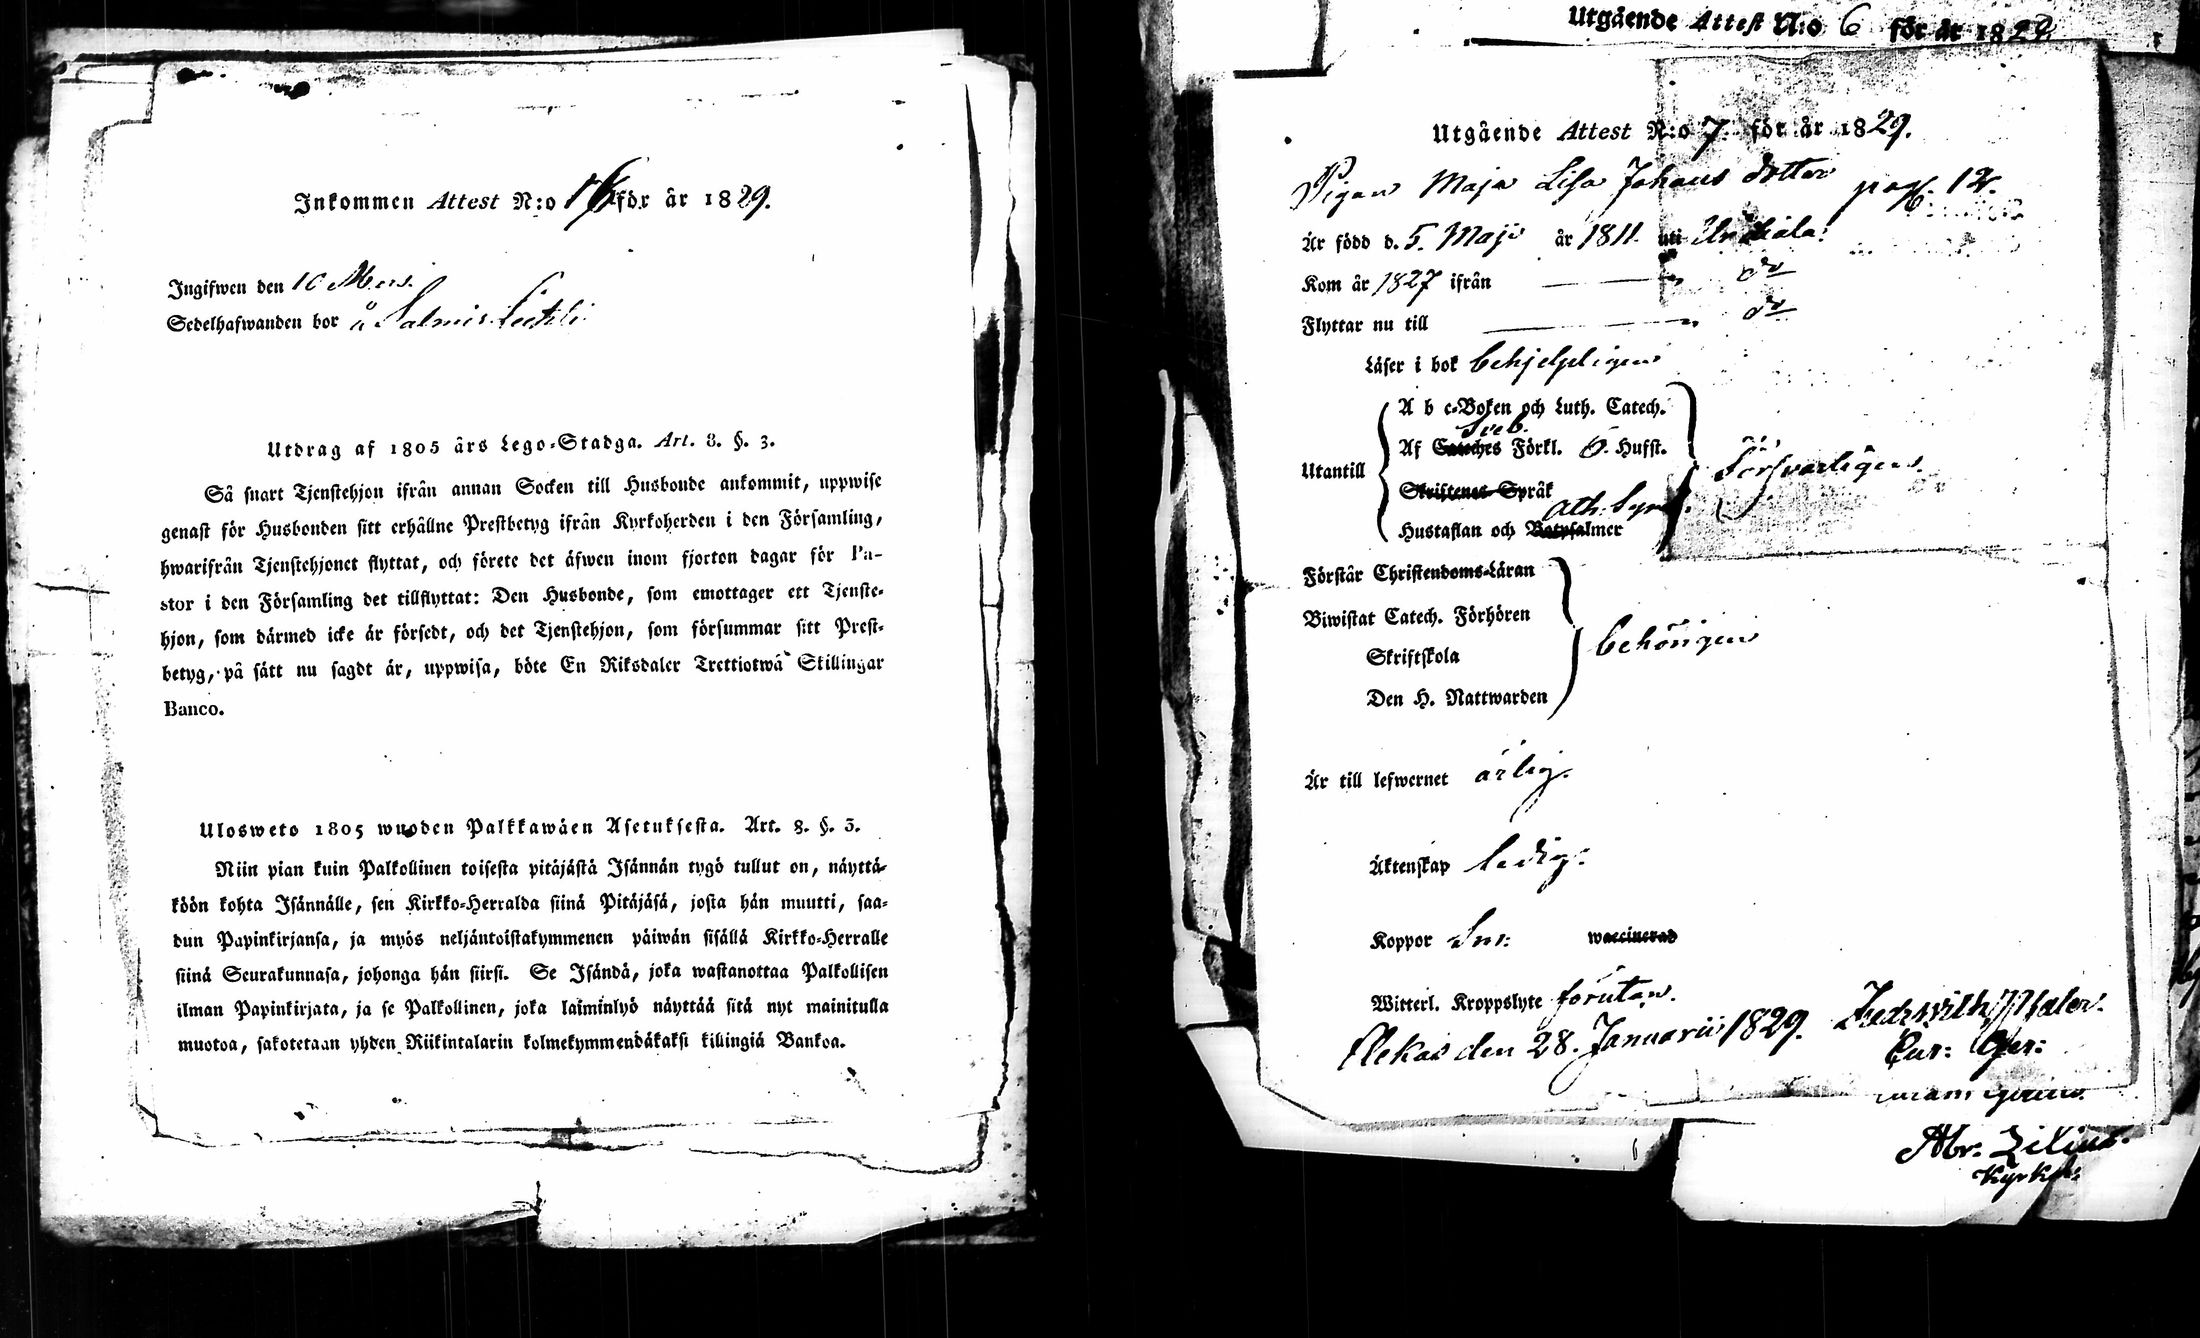 Inkommen Attest N:o 16 för år 1829.
Ingifwen den 10 Mars.
Sedelhafwanden bor å Salmis
Utdrag af 1805 års Lego-Stadga. Art. 8. §. 3.
Så snart Tjenstehjon ifrån annan Socken till Husbonde ankommit, uppwise
genast för Husbonden sitt erhållne Prestbetyg ifrån Kyrkoherden i den Församling,
hwarifrån Tjenstehjonet flyttat, och förete det äfwen inom fjorton dagar för Pa-
stor i den Församling det tillflyttat: Den Husbonde, som emottager ett Tjenste-
hjon, som därmed icke är försedt, och det Tjenstehjon, som försummar sitt Prest-
betyg, på sätt nu sagdt är, uppwisa, böte En Riksdaler Trettiotwå Skillingar
Banco.
Ulosweto 1805 wuoden Palkkawäen Asetuksesta. Art. 8. §. 3.
Niin pian kuin Palkollinen toisesta pitäjästä Isännän tygö tullut on, näyttä-
köön kohta Isännälle, sen Kirkko-Herralda siinä Pitäjäsä, josta hän muutti, saa-
dun Papinkirjansa, ja myös neljäntoistakymmenen päiwän sisällä Kirkko-Herralle
siinä Seurakunnasa, johonga hän siirsi. Se Isändä, joka wastanottaa Palkollisen
ilman Papinkirjata, ja se Palkollinen, joka laiminlyö näyttää sitä nyt mainitulla
muotoa, sakotetaan yhden Riikintalarin kolmekymmendäkaksi killingiä Bankoa.
Utgående Attest N:o 6 för år 1829
Utgående Attest N:o 7. för år 1829.
Pigan Maja Lisa Johans dotter pag. 12.
Är född d. 5. Maji år 1811. uti Urdiala.
Kom år 1827 ifrån do
Flyttar nu till do
Läser i bok behjelpligen
A b c-Boken och Luth. Catech.
Sveb.
Af Catechés Förkl. Ö. Hufst.
Utantill försvarligen.
Skriftenes Språk
Ath. Symb.
Hustaflan och Botpsalmer
Förstår Christendoms-Läran
Biwistat Catech. Förhören
behörigen
Skriftskola
Den H. Nattwarden
Är till lefwernet ärlig.
Äktenskap ledig.
Koppor waccinerad
Witterl. Kroppslyte förutan.
Akkas den 28. Januarii 1829.
Abr. Zilius.
Kyrkoh: